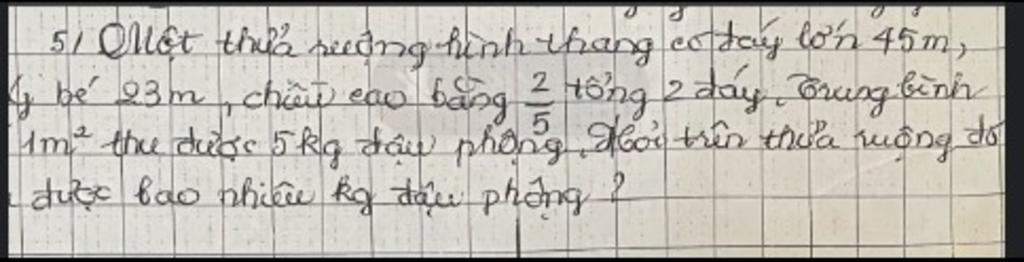 5/ Một thửa ruộng hình thang có đáy lớn 45m,
bé 23m, chiều cao bằng 2/5 tổng 2 đáy. Trung bình
1m² thu được 5kg đậu phộng. Hỏi trên thửa ruộng đó
được bao nhiêu kg đậu phộng?